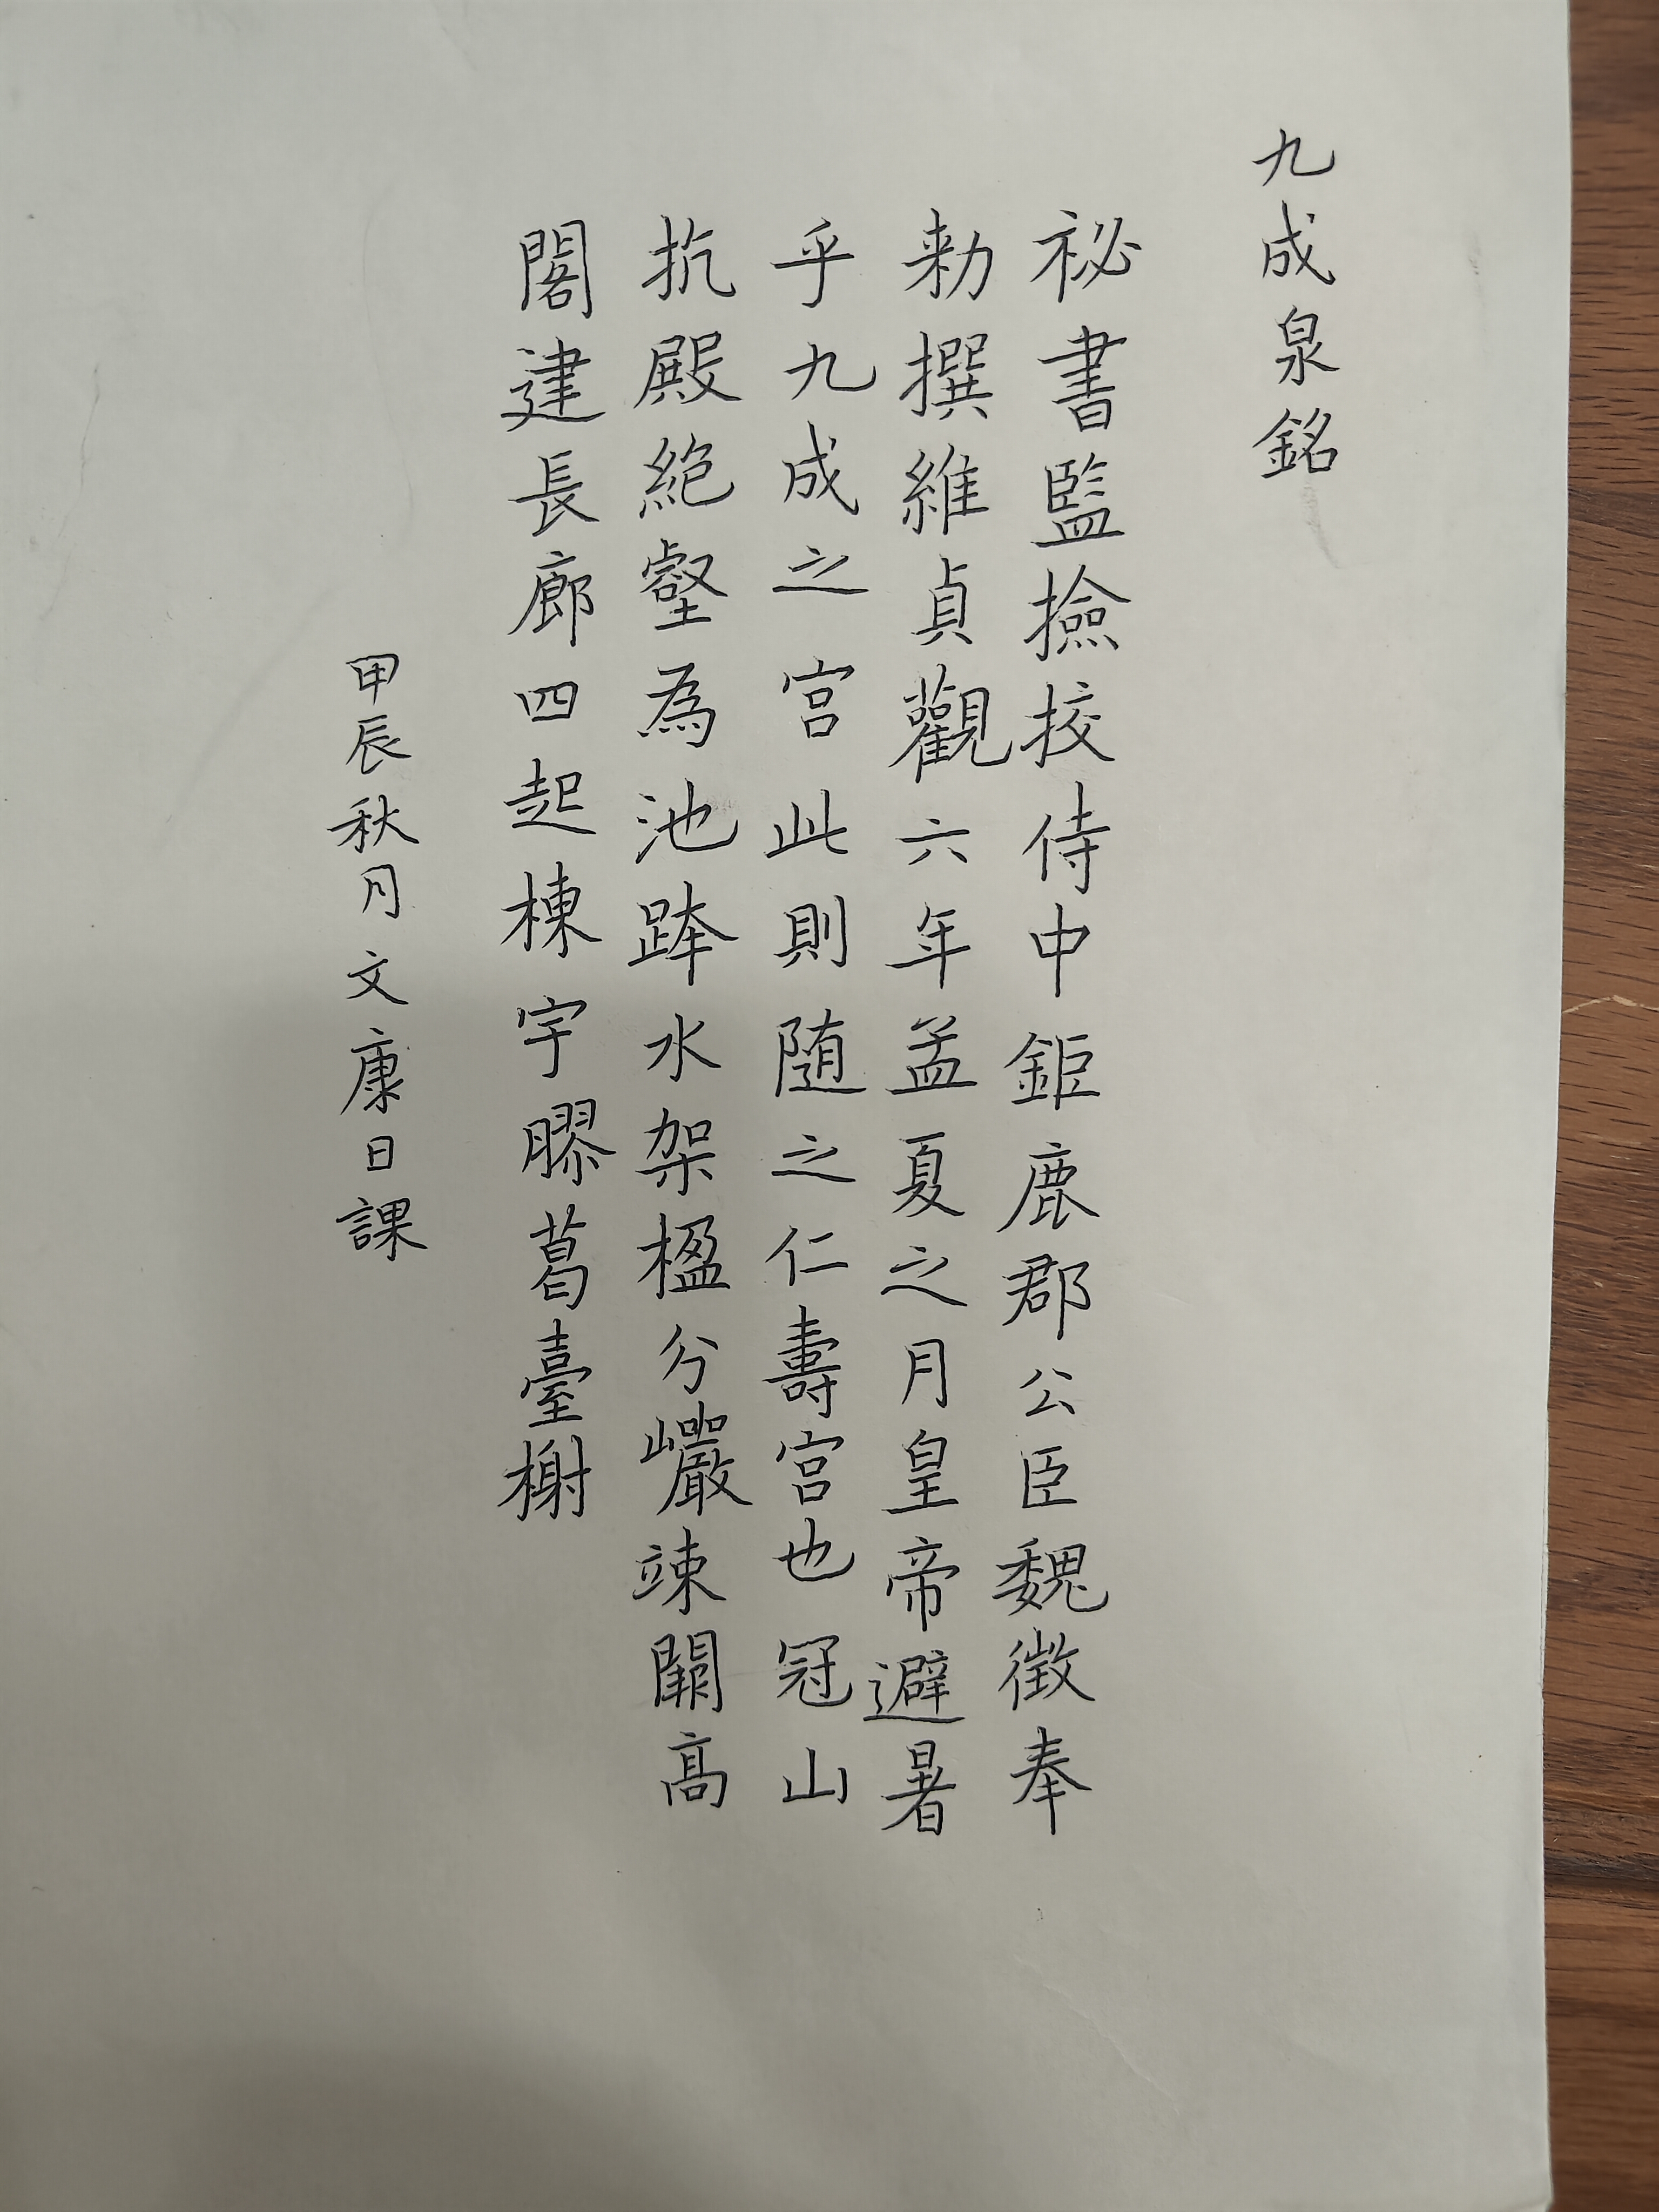 九成泉銘
祕書監撿挍侍中鉅鹿郡公臣魏徵奉
勑撰維貞觀六年孟夏之月皇帝避暑
乎九成之宮此則随之仁壽宮也冠山
抗殿絶壑為池跨水架楹分巖竦闕高
閣建長廊四起棟宇膠葛臺榭
甲辰秋月文康日課